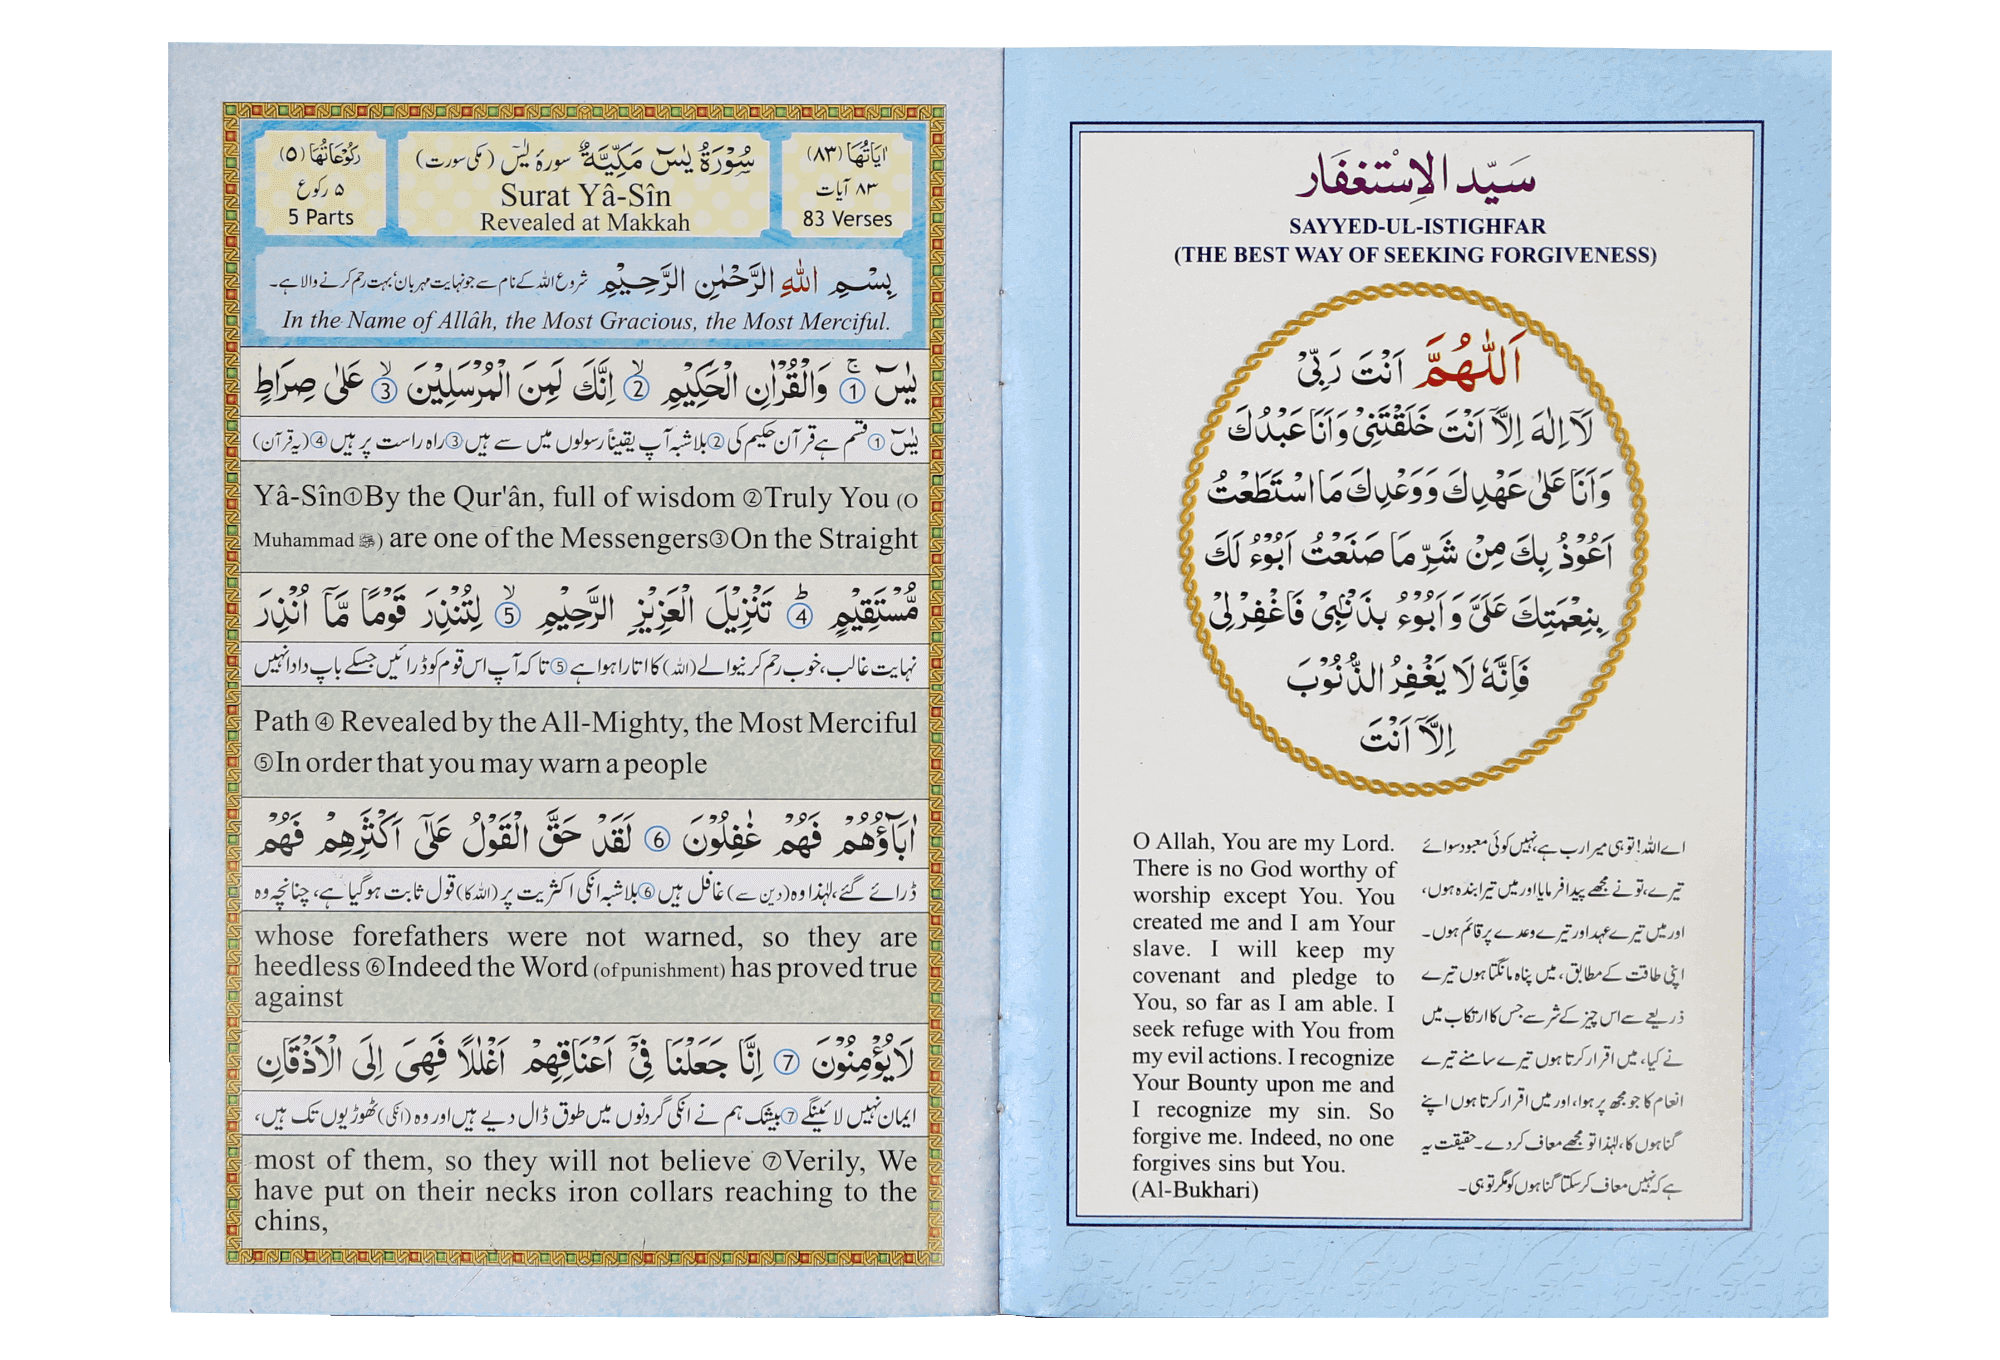 رُكُوْعَاتُهَا (٥)
۵ رکوع
5 Parts
سُوْرَةُ يٰسٓ مَكِّيَّةٌ سورۂ یٰسٓ (مکی سورت)
Surat Yâ-Sîn
Revealed at Makkah
اٰيَاتُهَا (٨٣)
۸۳ آیات
83 Verses
بِسْمِ اللّٰهِ الرَّحْمٰنِ الرَّحِيْمِ شروع اللہ کے نام سے جو نہایت مہربان، بہت رحم کرنے والا ہے۔
In the Name of Allâh, the Most Gracious, the Most Merciful.
يٰسٓ ۚ ① وَالْقُرْاٰنِ الْحَكِيْمِ ۙ ② اِنَّكَ لَمِنَ الْمُرْسَلِيْنَ ۙ ③ عَلٰى صِرَاطٍ
یٰسٓ ① قسم ہے قرآن حکیم کی ② بلاشبہ آپ یقیناً رسولوں میں سے ہیں ③ راہ راست پر ہیں ④ (یہ قرآن)
Yâ-Sîn①By the Qur'ân, full of wisdom ②Truly You (O
Muhammad ﷺ) are one of the Messengers③On the Straight
مُّسْتَقِيْمٍ ؕ ④ تَنْزِيْلَ الْعَزِيْزِ الرَّحِيْمِ ۙ ⑤ لِتُنْذِرَ قَوْمًا مَّاۤ اُنْذِرَ
نہایت غالب، خوب رحم کرنیوالے (اللہ) کا اتارا ہوا ہے ⑤ تاکہ آپ اس قوم کو ڈرائیں جسکے باپ دادا نہیں
Path ④ Revealed by the All-Mighty, the Most Merciful
⑤In order that you may warn a people
اٰبَآؤُهُمْ فَهُمْ غٰفِلُوْنَ ⑥ لَقَدْ حَقَّ الْقَوْلُ عَلٰۤى اَكْثَرِهِمْ فَهُمْ
ڈرائے گئے، لہٰذا وہ (دین سے) غافل ہیں ⑥ بلاشبہ انکی اکثریت پر (اللہ کا) قول ثابت ہوگیا ہے، چنانچہ وہ
whose forefathers were not warned, so they are
heedless ⑥Indeed the Word (of punishment) has proved true
against
لَا يُؤْمِنُوْنَ ⑦ اِنَّا جَعَلْنَا فِيْۤ اَعْنَاقِهِمْ اَغْلٰلًا فَهِيَ اِلَى الْاَذْقَانِ
ایمان نہیں لائینگے ⑦ بیشک ہم نے انکی گردنوں میں طوق ڈال دیے ہیں اور وہ (انکی) ٹھوڑیوں تک ہیں،
most of them, so they will not believe ⑦Verily, We
have put on their necks iron collars reaching to the
chins,
سَيِّد الْاِسْتِغْفَار
SAYYED-UL-ISTIGHFAR
(THE BEST WAY OF SEEKING FORGIVENESS)
اَللّٰهُمَّ اَنْتَ رَبِّيْ
لَاۤ اِلٰهَ اِلَّاۤ اَنْتَ خَلَقْتَنِيْ وَاَنَا عَبْدُكَ
وَاَنَا عَلٰى عَهْدِكَ وَوَعْدِكَ مَا اسْتَطَعْتُ
اَعُوْذُ بِكَ مِنْ شَرِّ مَا صَنَعْتُ اَبُوْءُ لَكَ
بِنِعْمَتِكَ عَلَيَّ وَاَبُوْءُ بِذَنْبِيْ فَاغْفِرْ لِيْ
فَاِنَّهٗ لَا يَغْفِرُ الذُّنُوْبَ
اِلَّاۤ اَنْتَ
O Allah, You are my Lord.
There is no God worthy of
worship except You. You
created me and I am Your
slave. I will keep my
covenant and pledge to
You, so far as I am able. I
seek refuge with You from
my evil actions. I recognize
Your Bounty upon me and
I recognize my sin. So
forgive me. Indeed, no one
forgives sins but You.
(Al-Bukhari)
اے اللہ! تو ہی میرا رب ہے، نہیں کوئی معبود سوائے
تیرے، تو نے مجھے پیدا فرمایا اور میں تیرا بندہ ہوں،
اور میں تیرے عہد اور تیرے وعدے پر قائم ہوں۔
اپنی طاقت کے مطابق، میں پناہ مانگتا ہوں تیرے
ذریعے سے اس چیز کے شر سے جس کا ارتکاب میں
نے کیا، میں اقرار کرتا ہوں تیرے سامنے تیرے
انعام کا جو مجھ پر ہوا، اور میں اقرار کرتا ہوں اپنے
گناہوں کا، لہٰذا تو مجھے معاف کردے۔ حقیقت یہ
ہے کہ نہیں معاف کرسکتا گناہوں کو مگر تو ہی۔